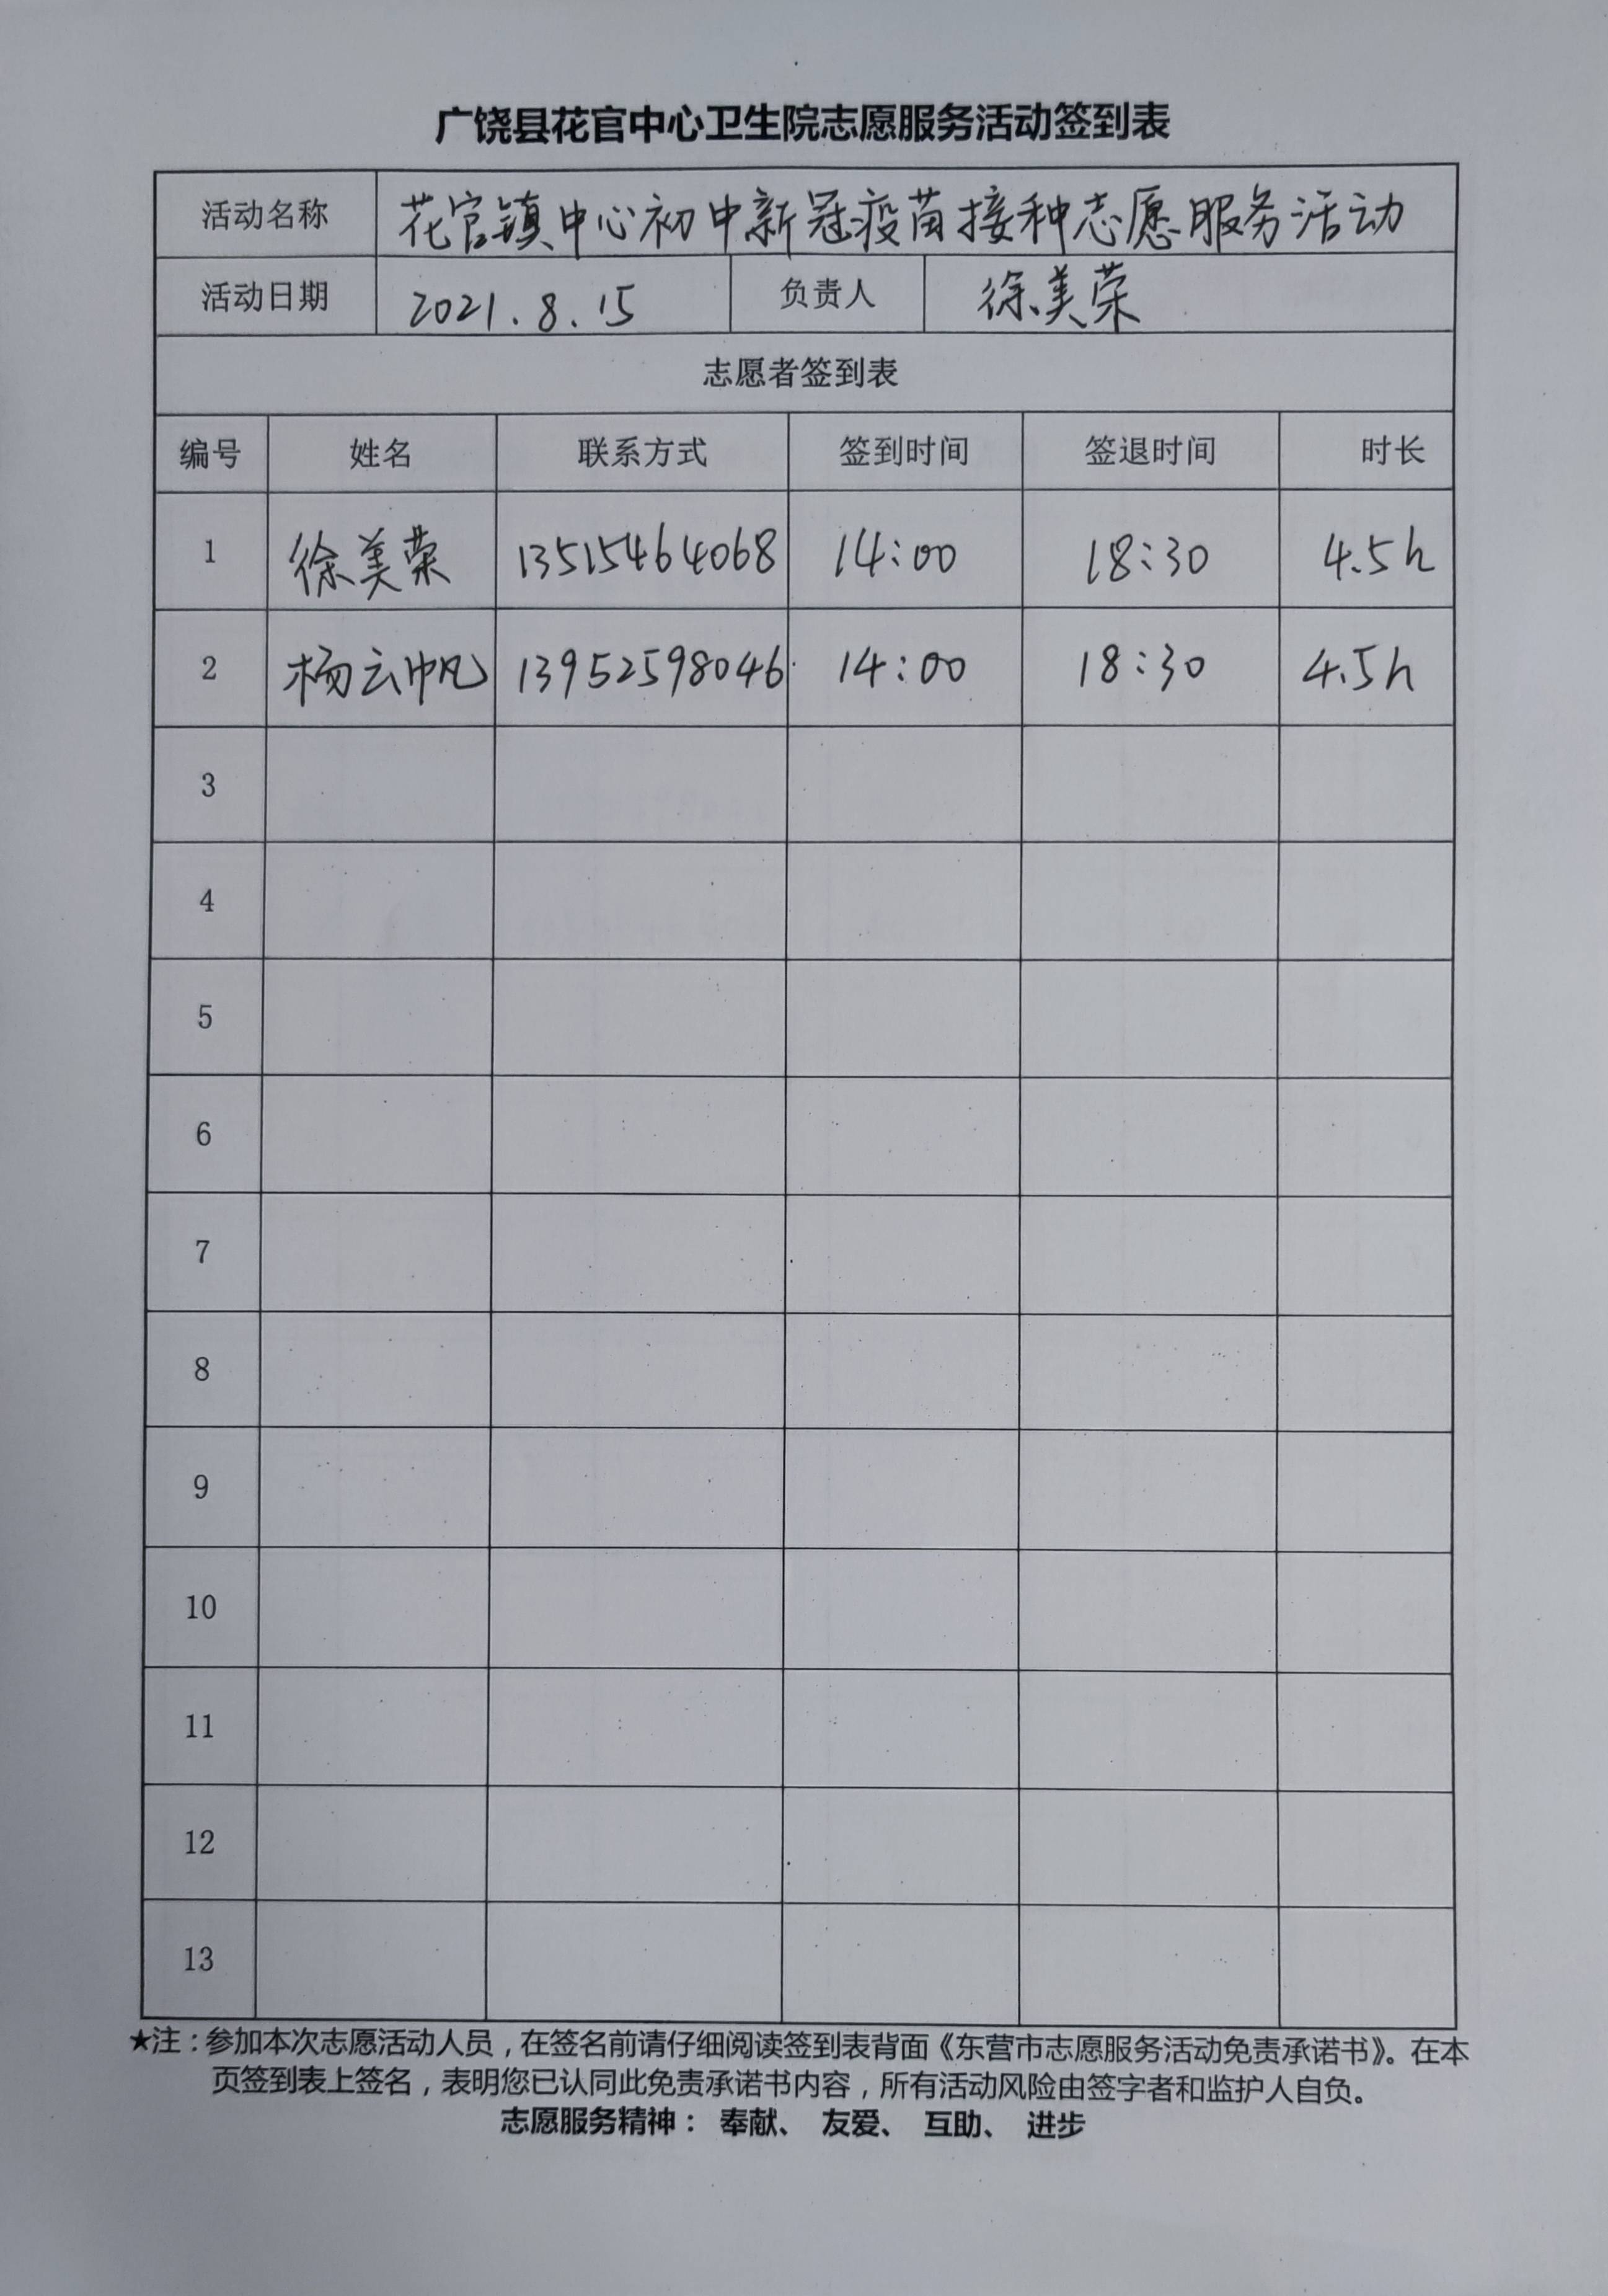 广饶县花官中心卫生院志愿服务活动签到表
活动名称 花官镇中心初中新冠疫苗接种志愿服务活动
活动日期 2021.8.15 负责人 徐美荣
志愿者签到表
编号 姓名 联系方式 签到时间 签退时间 时长
1 徐美荣 13515464068 14:00 18:30 4.5h
2 杨云帆 13952598046 14:00 18:30 4.5h
3
4
5
6
7
8
9
10
11
12
13
★注：参加本次志愿活动人员，在签名前请仔细阅读签到表背面《东营市志愿服务活动免责承诺书》。在本
页签到表上签名，表明您已认同此免责承诺书内容，所有活动风险由签字者和监护人自负。
志愿服务精神： 奉献、 友爱、 互助、 进步